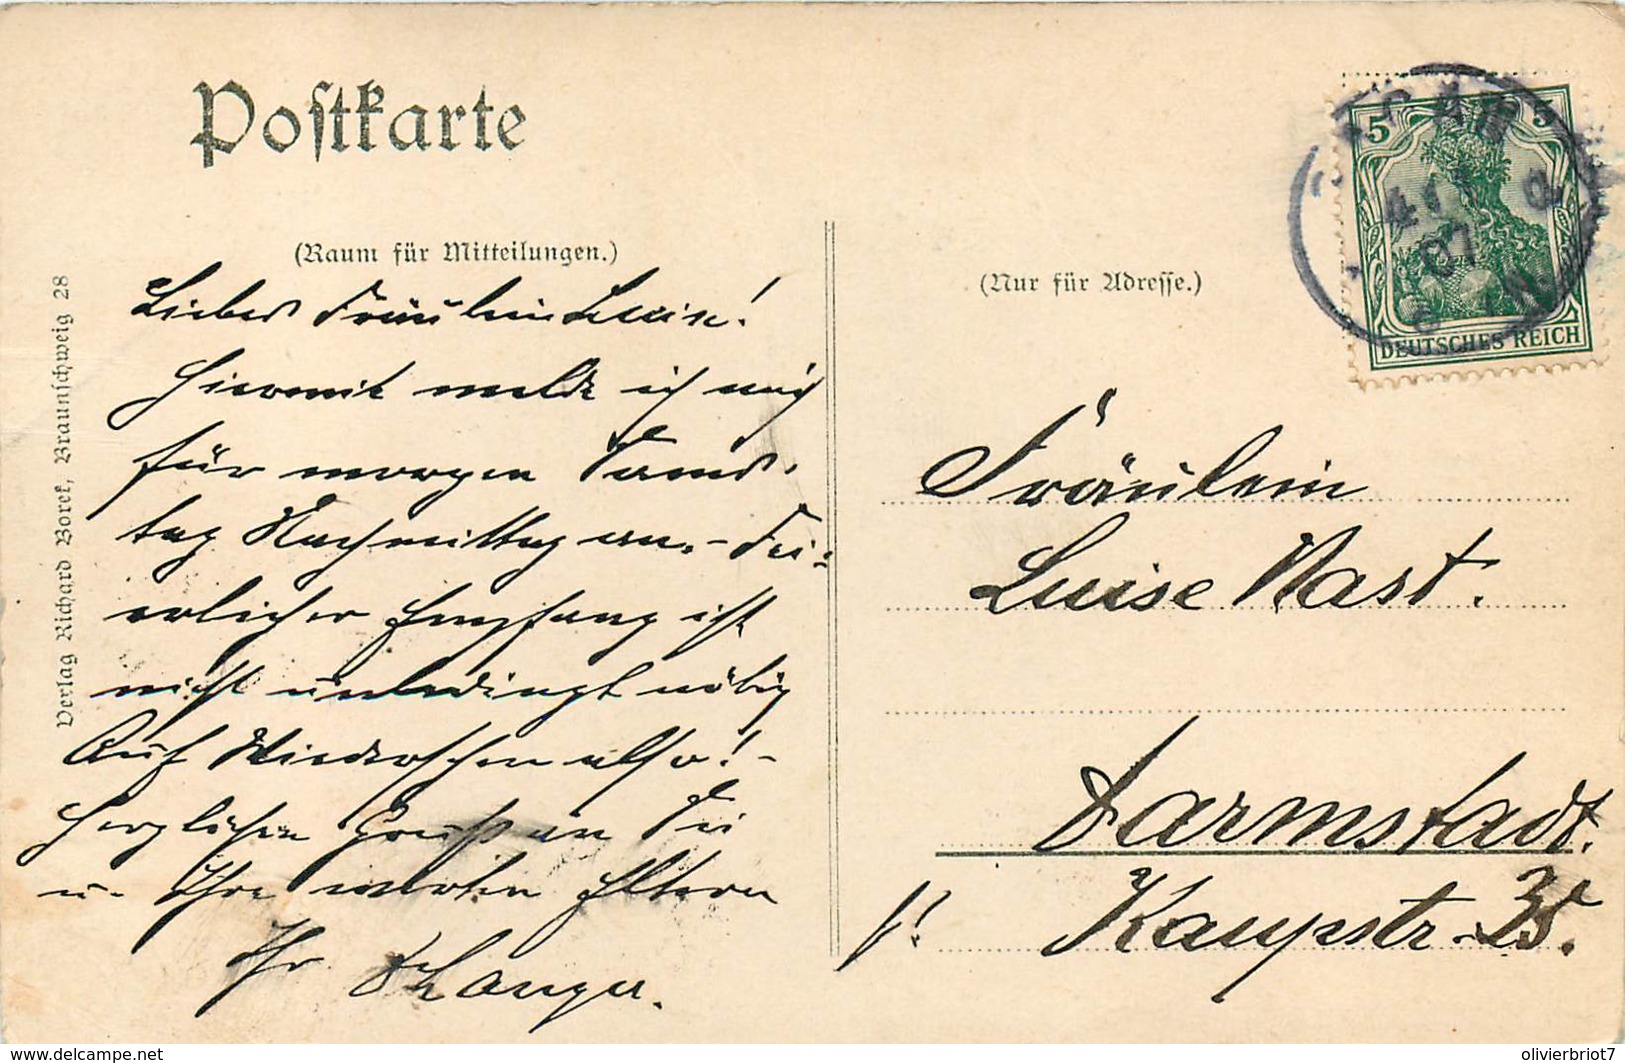 Postkarte
(Raum für Mitteilungen.)
(Nur für Adresse.)
Verlag Richard Borek, Braunschweig 28
5 5
DEUTSCHES REICH
07
Liebes Fräulein Luise!
Hiermit melde ich mich
für morgen Sams-
tag Nachmittag an. – Fei-
erlicher Empfang ist
nicht unbedingt nötig
Auf Wiedersehen also! –
Herzlichen Gruß an Sie
u. Ihre werten Eltern
Ihr
Fräulein
Luise Nast.
Darmstadt.
Kaupstr. 35.
delcampe.net
olivierbriot7